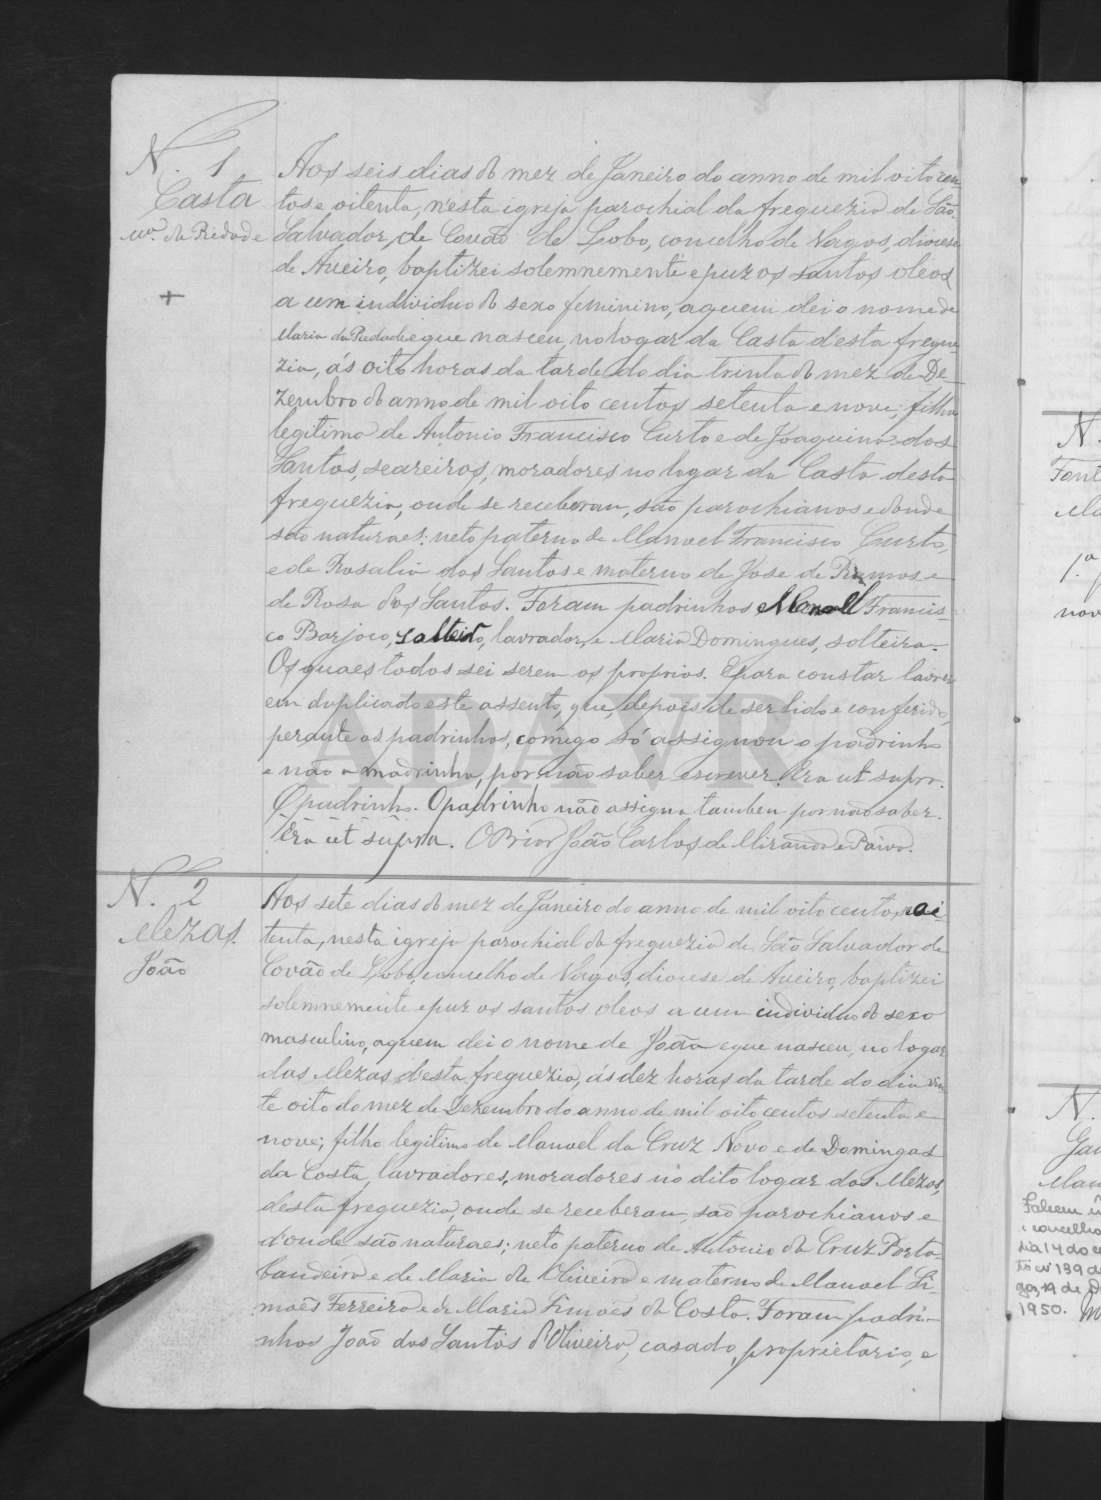 N. 1
Casta
M.ª da Piedade
+
Aos seis dias do mez de Janeiro do anno de mil oito cen-
tos e oitenta, n'esta igreja parochial da freguezia de São
Salvador de Covão de Lobo, concelho de Vagos, diocese
de Aveiro, baptizei solemnemente e puz os santos oleos
a um individuo do sexo feminino, a quem dei o nome de
Maria da Piedade e que nasceu, no logar da Casta d'esta fregue-
zia, ás oito horas da tarde do dia trinta do mez de De-
zembro do anno de mil oito centos setenta e nove; filha
legitima de Antonio Francisco Curto e de Joaquina dos
Santos, seareiros, moradores no logar da Casta desta
freguezia, onde se receberam, são parochianos e donde
são naturaes: neto paterno de Manoel Francisco Curto,
e de Rosalia dos Santos e materno de José de Ramos e
de Rosa dos Santos. Foram padrinhos Manoel Francis-
co Barjoco, solteiro, lavrador, e Maria Domingues, solteira.
Os quaes todos sei serem os proprios. E para constar lavrei
em duplicado este assento, que, depois de ser lido e conferido,
perante os padrinhos, comigo só assignou o padrinho
e não a madrinha, por não saber escrever. Era ut supra.
O padrinho. O padrinho não assigna tambem por não saber.
Era ut supra. O Prior João Carlos de Miranda e Paiva.
N. 2
Mezas.
João
Aos sete dias do mez de Janeiro do anno de mil oito centos oi-
tenta, nesta igreja parochial da freguezia de São Salvador de
Covão de Lobo, concelho de Vagos, diocese de Aveiro, baptizei
solemnemente e puz os santos oleos a um individuo do sexo
masculino, a quem dei o nome de João e que nasceu, no logar
das Mezas, desta freguezia, ás dez horas da tarde do dia vin-
te oito do mez de Dezembro do anno de mil oito centos setenta e
nove; filho legitimo de Manoel da Cruz Novo e de Domingas
da Costa, lavradores, moradores no dito logar das Mezas,
desta freguezia, onde se receberam, são parochianos e
d'onde são naturaes; neto paterno de Antonio da Cruz Porta-
bandeira e de Maria de Oliveira e materno de Manoel Si-
mões Ferreira e de Maria Simões da Costa. Foram padri-
nhos João dos Santos d'Oliveira, casado, proprietario, e
ADAVR
N.
1.ª
N.
dia 14 do
nº 139 de
1950.